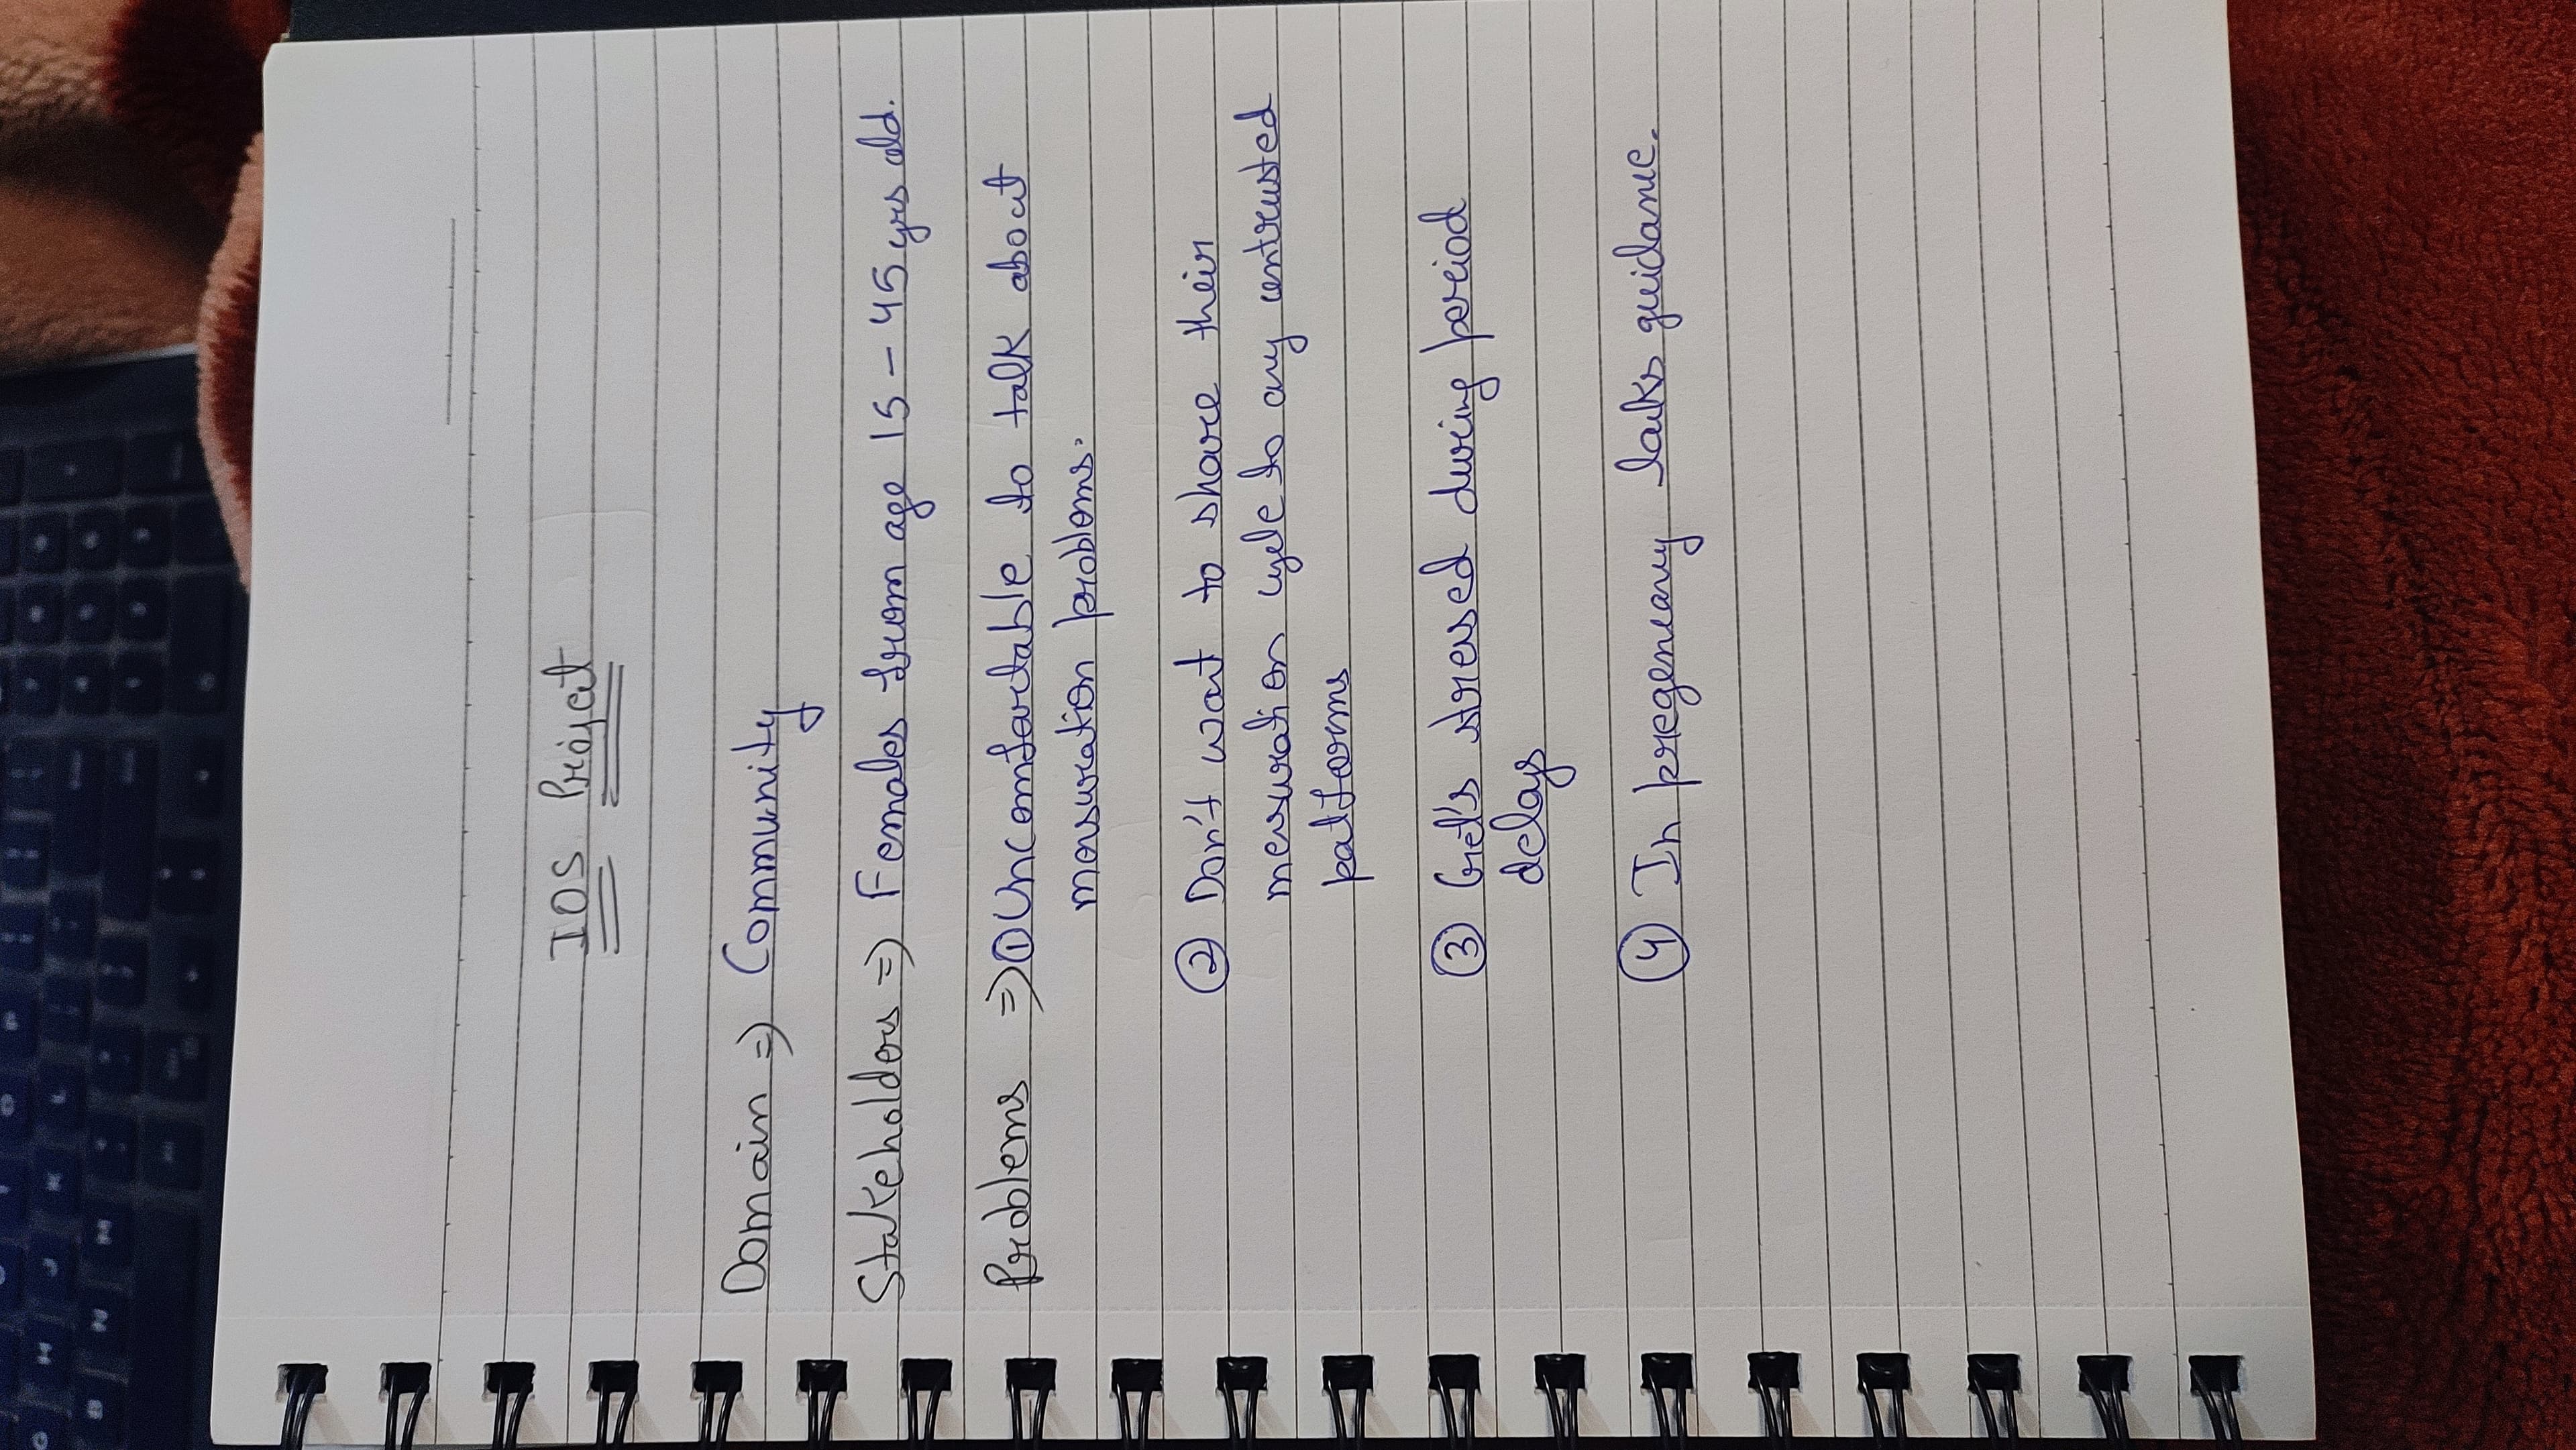 IOS Project
Domain => Community
Stakeholders => Females from age 15 - 45 yrs old.
Problems => ① Uncomfortable to talk about
mensuration problems.
② Don't want to share their
mensuration cycle to any untrusted
patforms
③ Get's stressed during period
delays
④ In pregenancy laks guidance.